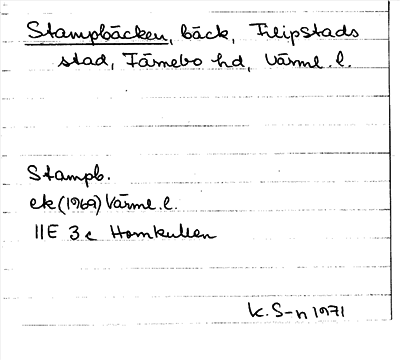 Stampbäcken, bäck, Filipstads
stad, Färnebo hd, Värml. l.
Stampb.
ek (1969) Värml. l.
11E 3c Hornkullen
K. S-n 1971